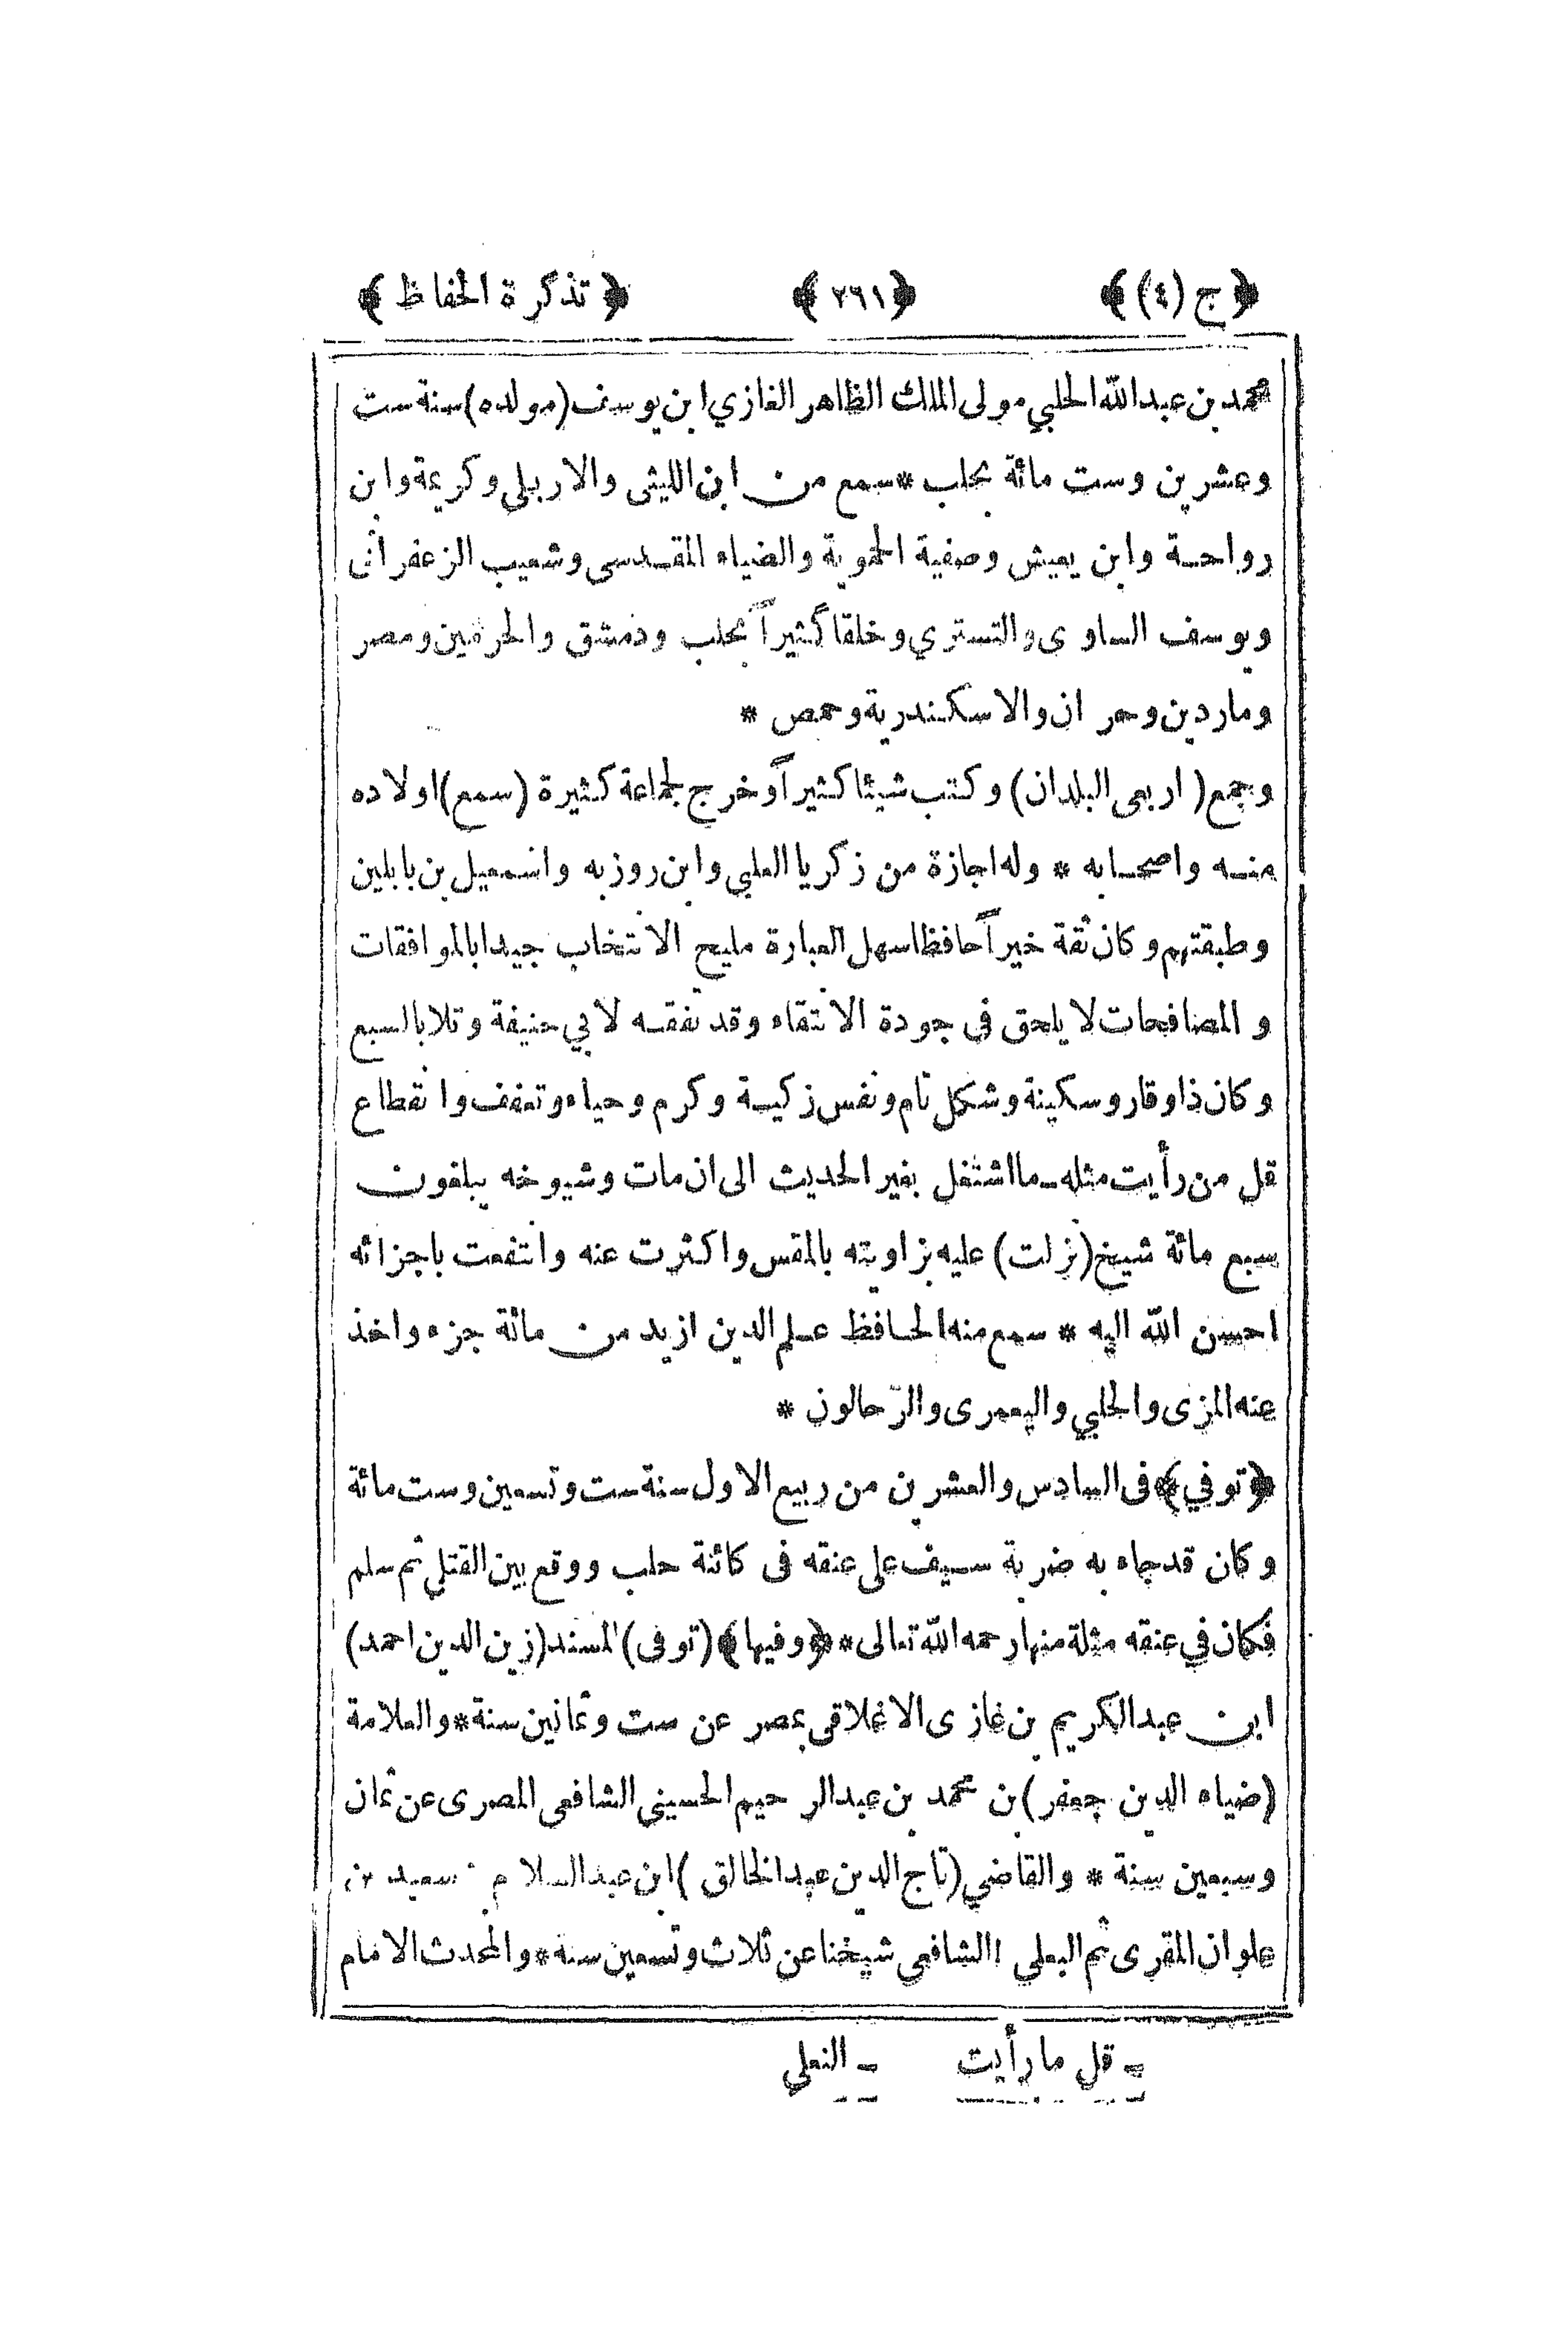 ﴿ج (٤)﴾ ﴿٢٦١﴾ ﴿تذكرة الحفاظ﴾
محمد بن عبد الله الحلبي مولى الملك الظاهر الغازي ابن يوسف (مولده) سنة ست
وعشرين وست مائة بحلب * سمع من ابن الليثى والاربلى وكريمة وابن
رواحة وابن يعيش وصفية الحموية والضياء المقدسى وشعيب الزعفرانى
ويوسف الساوى والتستري وخلقا كثيراً بحلب ودمشق والحرمين ومصر
وماردين وحران والاسكندرية وحمص *
وجمع (اربعى البلدان) وكتب شيئا كثيراً وخرج لجماعة كثيرة (سمع) اولاده
منه واصحابه * وله اجازة من زكريا العلبي وابن روزبه واسمعيل بن باتلين
وطبقتهم وكان ثقة خيراً حافظا سهل العبارة مليح الانتخاب جيدا بالموافقات
والمصافحات لا يلحق فى جودة الانتقاء وقد تفقه لابي حنيفة وتلا بالسبع
وكان ذا وقار وسكينة وشكل تام ونفس زكية وكرم وحياء وتعفف وانقطاع
قل من رأيت مثله ـ ما اشتغل بغير الحديث الى ان مات وشيوخه يبلغون
سبع مائة شيخ (نزلت) عليه بزاويته بالمقس واكثرت عنه وانتفعت باجزائه
احسن الله اليه * سمع منه الحافظ علم الدين ازيد من مائة جزء واخذ
عنه المزى والحلبي واليعمرى والرّحالون *
﴿توفي﴾ فى السادس والعشرين من ربيع الاول سنة ست وتسعين وست مائة
وكان قد جاء به ضربة سيف على عنقه فى كائنة حلب ووقع بين القتلى ثم سلم
فكان في عنقه مثلة منها رحمه الله تعالى * ﴿وفيها﴾ (توفى) المسند (زين الدين احمد)
ابن عبد الكريم بن غازى الاغلاقى بمصر عن ست وثمانين سنة * والعلامة
(ضياء الدين جعفر) بن محمد بن عبد الرحيم الحسينى الشافعى المصرى عن ثمان
وسبعين سنة * والقاضي (تاج الدين عبد الخالق) ابن عبد السلام سعيد بن
علوان المقرى ثم البعلي الشافعى شيخنا عن ثلاث وتسعين سنة * والمحدث الامام
ـ قل ما رأيت ـ النعلي